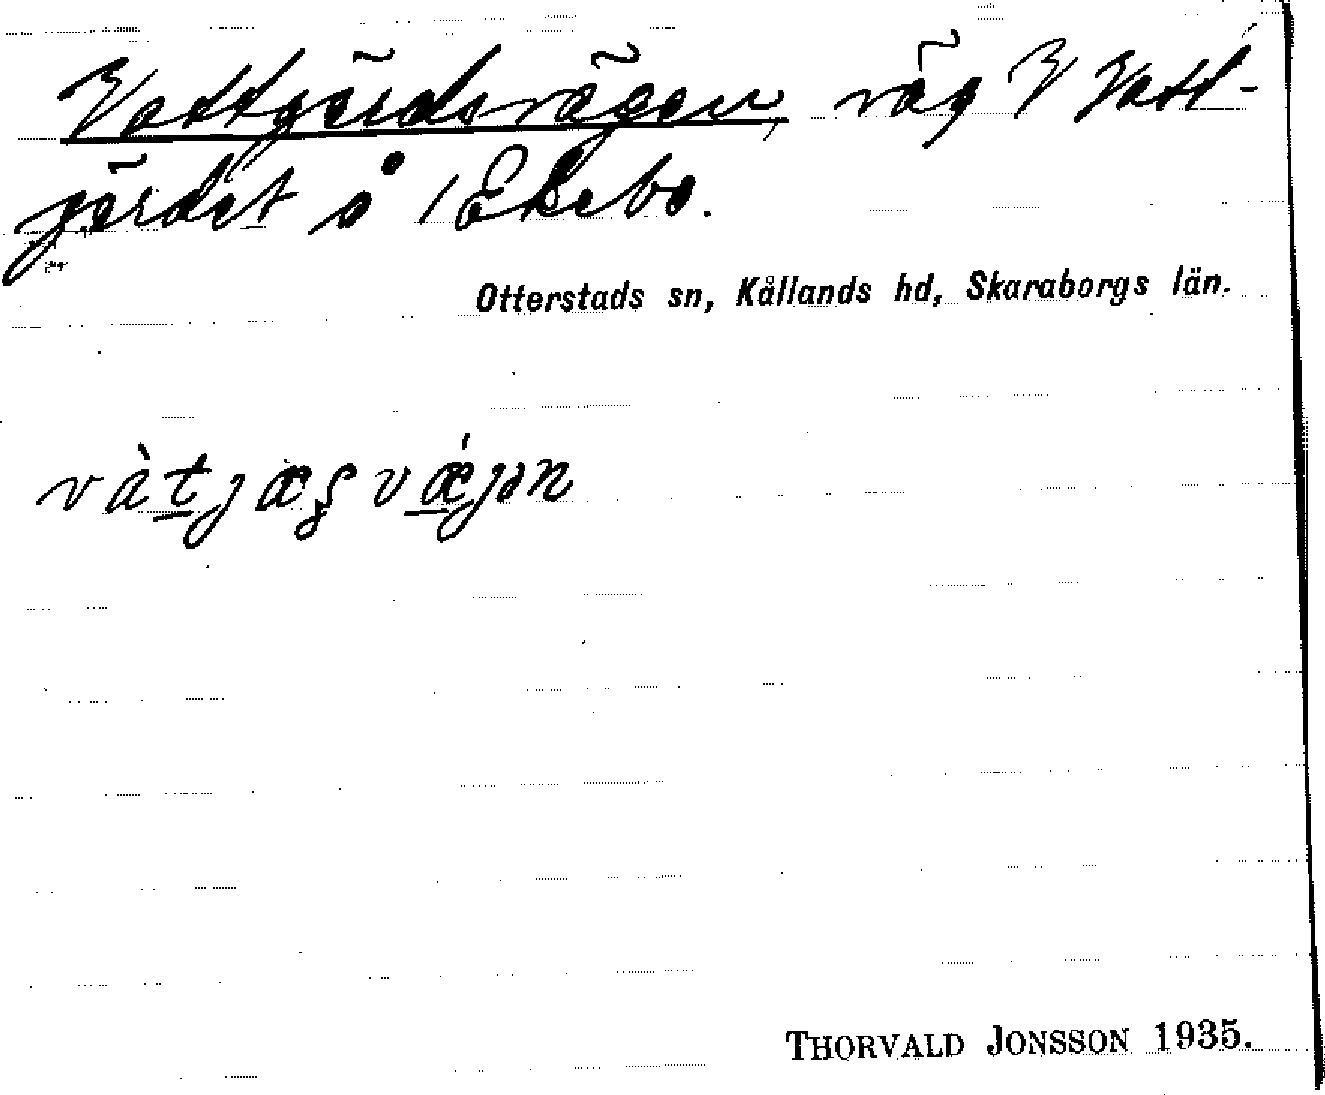 Vattgärdsvägen, väg I Vatt-
gärdet å 1 Ekebo.
Otterstads sn, Kållands hd, Skaraborgs län.
vàtjæʂvǽjən
THORVALD JONSSON 1935.